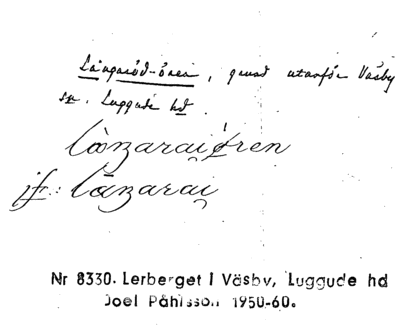 Långaröd-ören, grund utanför Väsby
sn. Luggude hd.
lànzarai̯ǿren
jfr: lānzarai̯
Nr 8330. Lerberget i Väsby, Luggude hd
Joel Påhlsson 1950-60.